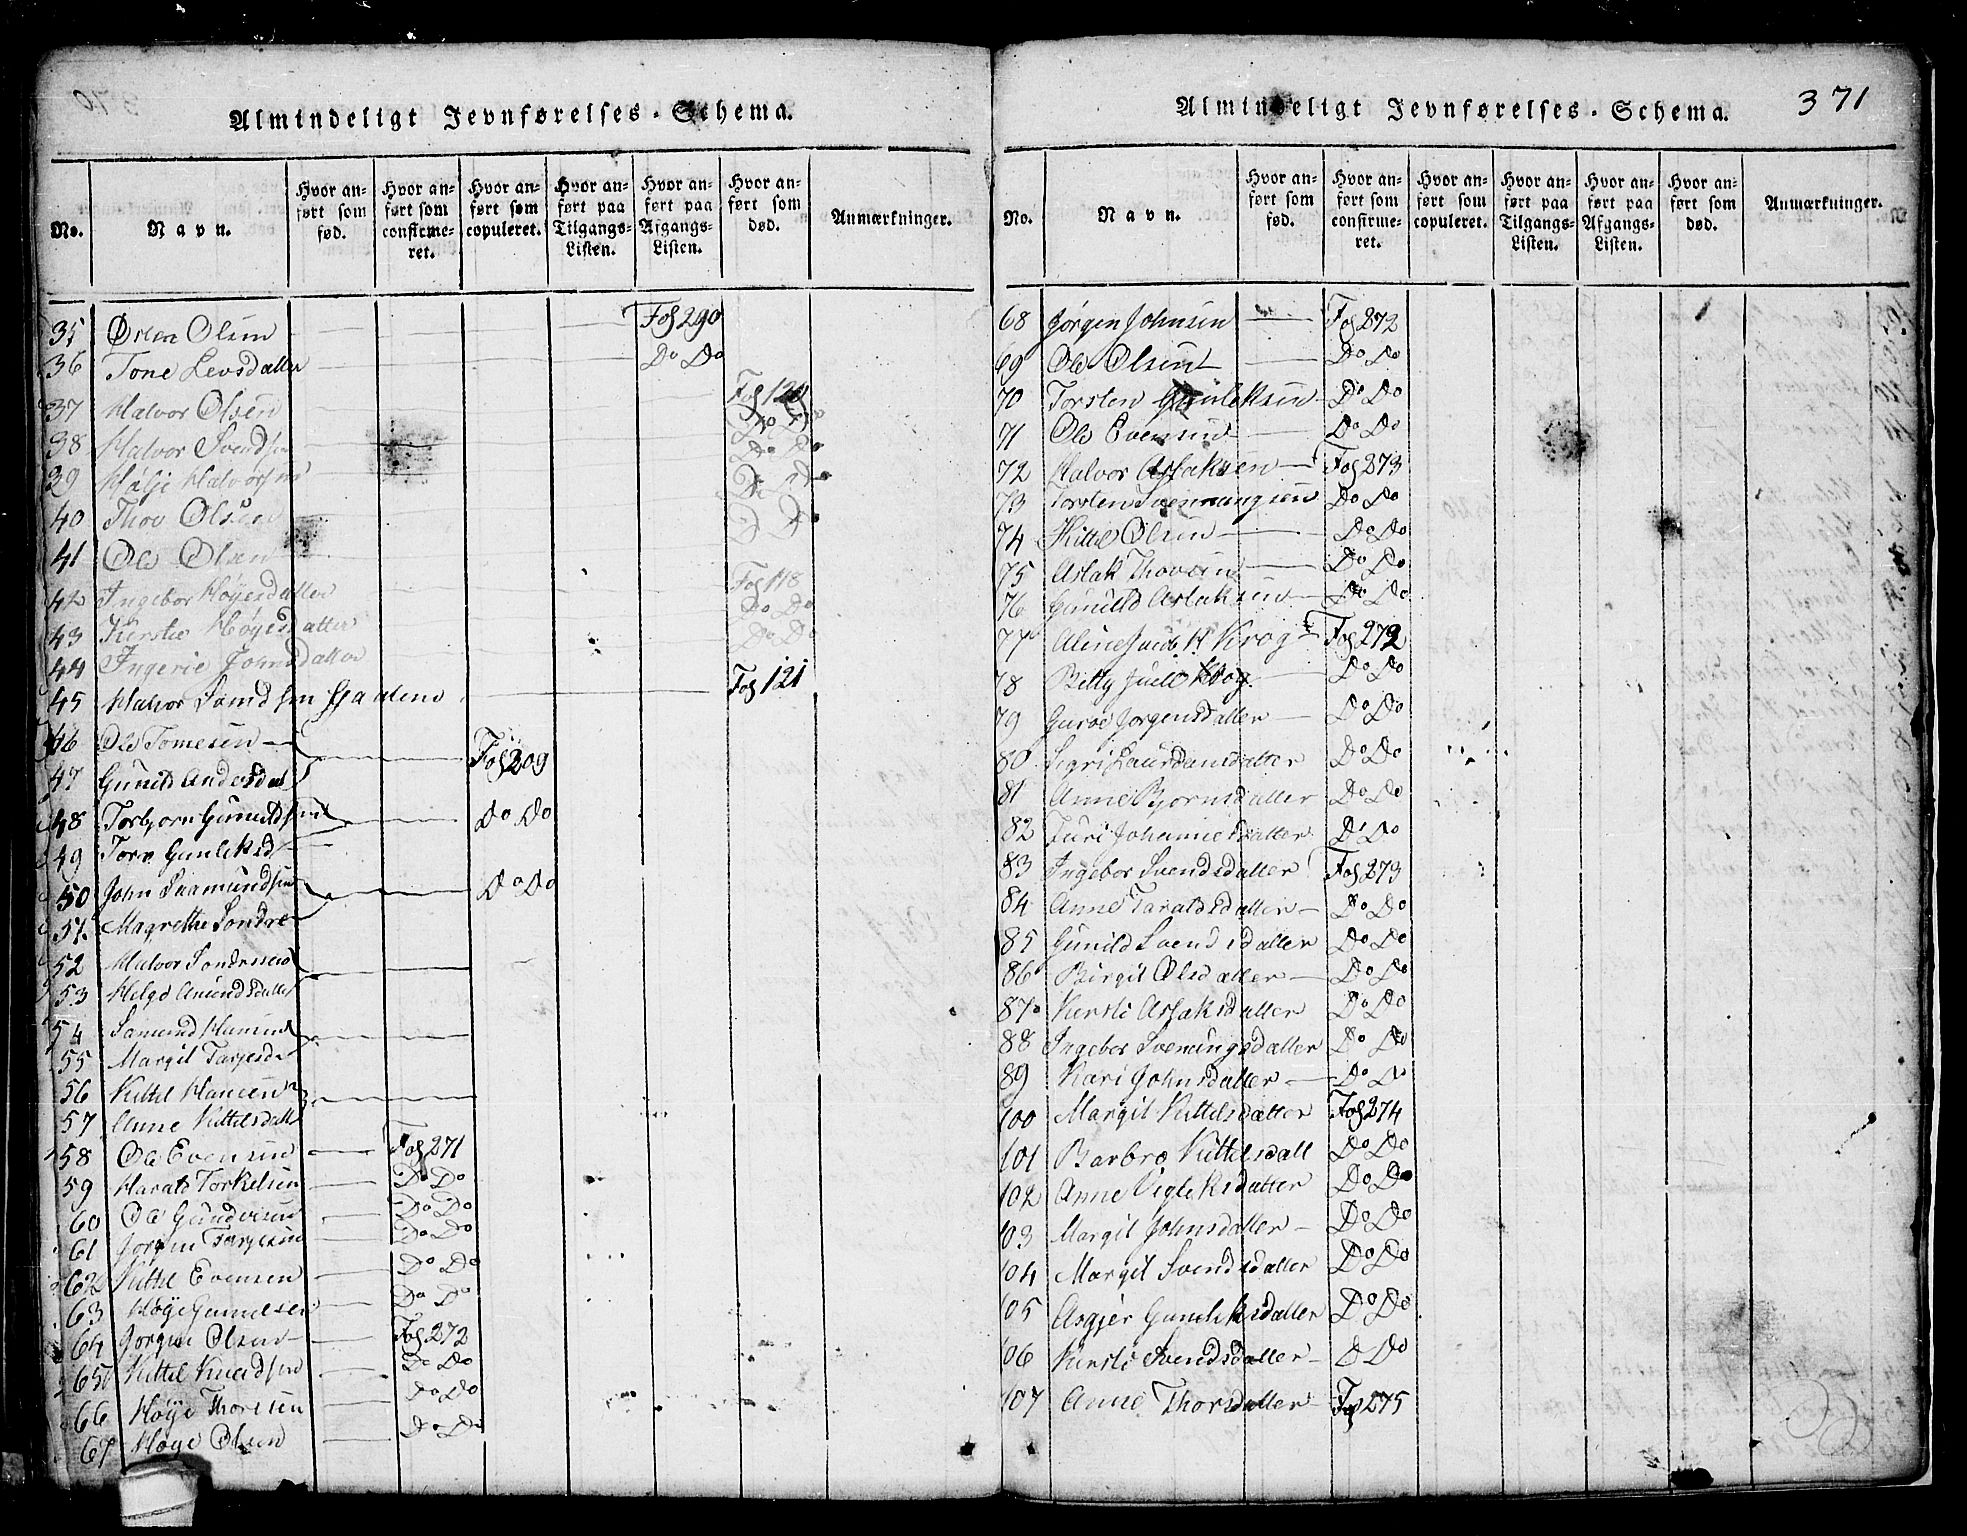 Almindeligt Jevnførelses-Schema.
No. Navn. Hvor anført som fød. Hvor anført som confirmeret. Hvor anført som copuleret. Hvor anført paa Tilgangs-Listen. Hvor anført paa Afgangs-Listen. Hvor anført som død. Anmærkninger.
35 Østen Olsen Fol 290
36 Tone Levsdatter Do Do
37 Halvor Olsen Fol 120
38 Halvor Svendsen Do Do
39 Hølje Halvorsen Do Do
40 Thov Olsen Do Do
41 Ole Olsen D Do
42 Ingebor Høyesdatter Fol 118
43 Kerstie Høyesdatter Do Do
44 Ingerie Johnsdatter Do Do
45 Halvor Fol 121
46 Ole Tomesen
47 Gunild Andersdat Fol 209
48 Torbjorn Gunuldsen Do Do
49 Torn Gunleksd
50 John Saamundsen Do Do
51 Magrethe Sondre
52 Halvor Sondresen
53 Helge Amundsdatter
54 Samund
55 Margit Tarjesd
56 Kittel Hansen
57 Anne Kittelsdatt
58 Ole Evensen Fol 271
59 Harald Torkelsen Do Do
60 Ole Do Do
61 Jorgen Tarjesen Do Do
62 Kittel Evensen Do Do
63 Høye Gunulsen Do Do
64 Jorgen Olsen Fol 272
65 Kittel Knudsen Do Do
66 Høye Thoresen Do Do
67 Høye Olsen Do Do
Almindeligt Jevnførelses-Schema. 371
No. Navn. Hvor anført som fød. Hvor anført som confirmeret. Hvor anført som copuleret. Hvor anført paa Tilgangs-Listen. Hvor anført paa Afgangs-Listen. Hvor anført som død. Anmærkninger.
68 Jørgen Johnsen Fol 272
69 Ole Olsen Do Do
70 Torsten Gunleksen Do Do
71 Ole Evensen Do Do
72 Halvor Aslaksen Fol 273
73 Torsten Svenningsen Do Do
74 Kittel Olsen Do Do
75 Aslak Thovsen Do Do
76 Gunuld Aslaksen Do Do
77 Krog Fol 272
78 Bitty Juell Krog Do Do
79 Guroe Jorgensdatter Do Do
80 Sigri Laurdansdatter Do Do
81 Anne Bjornsdatter Do Do
82 Turi Johannesdatter Do Do
83 Ingebor Svendsdatter Fol 273
84 Anne Taraldsdatter Do Do
85 Gunild Svendsdatter Do Do
86 Birgit Olsdatter Do Do
87 Kersti Aslaksdatter Do Do
88 Ingebor Sveningsdatter Do Do
89 Kari Johnsdatter Do Do
100 Margit Kittelsdatter Fol 274
101 Barbro Kittelsdatt Do Do
102 Anne Vigleksdatter Do Do
103 Margit Johnsdatter Do Do
104 Margit Svendsdatter Do Do
105 Asgjer Gunleksdatter Do Do
106 Kersti Svendsdatter D Do
107 Anne Thorsdatter Fol 275